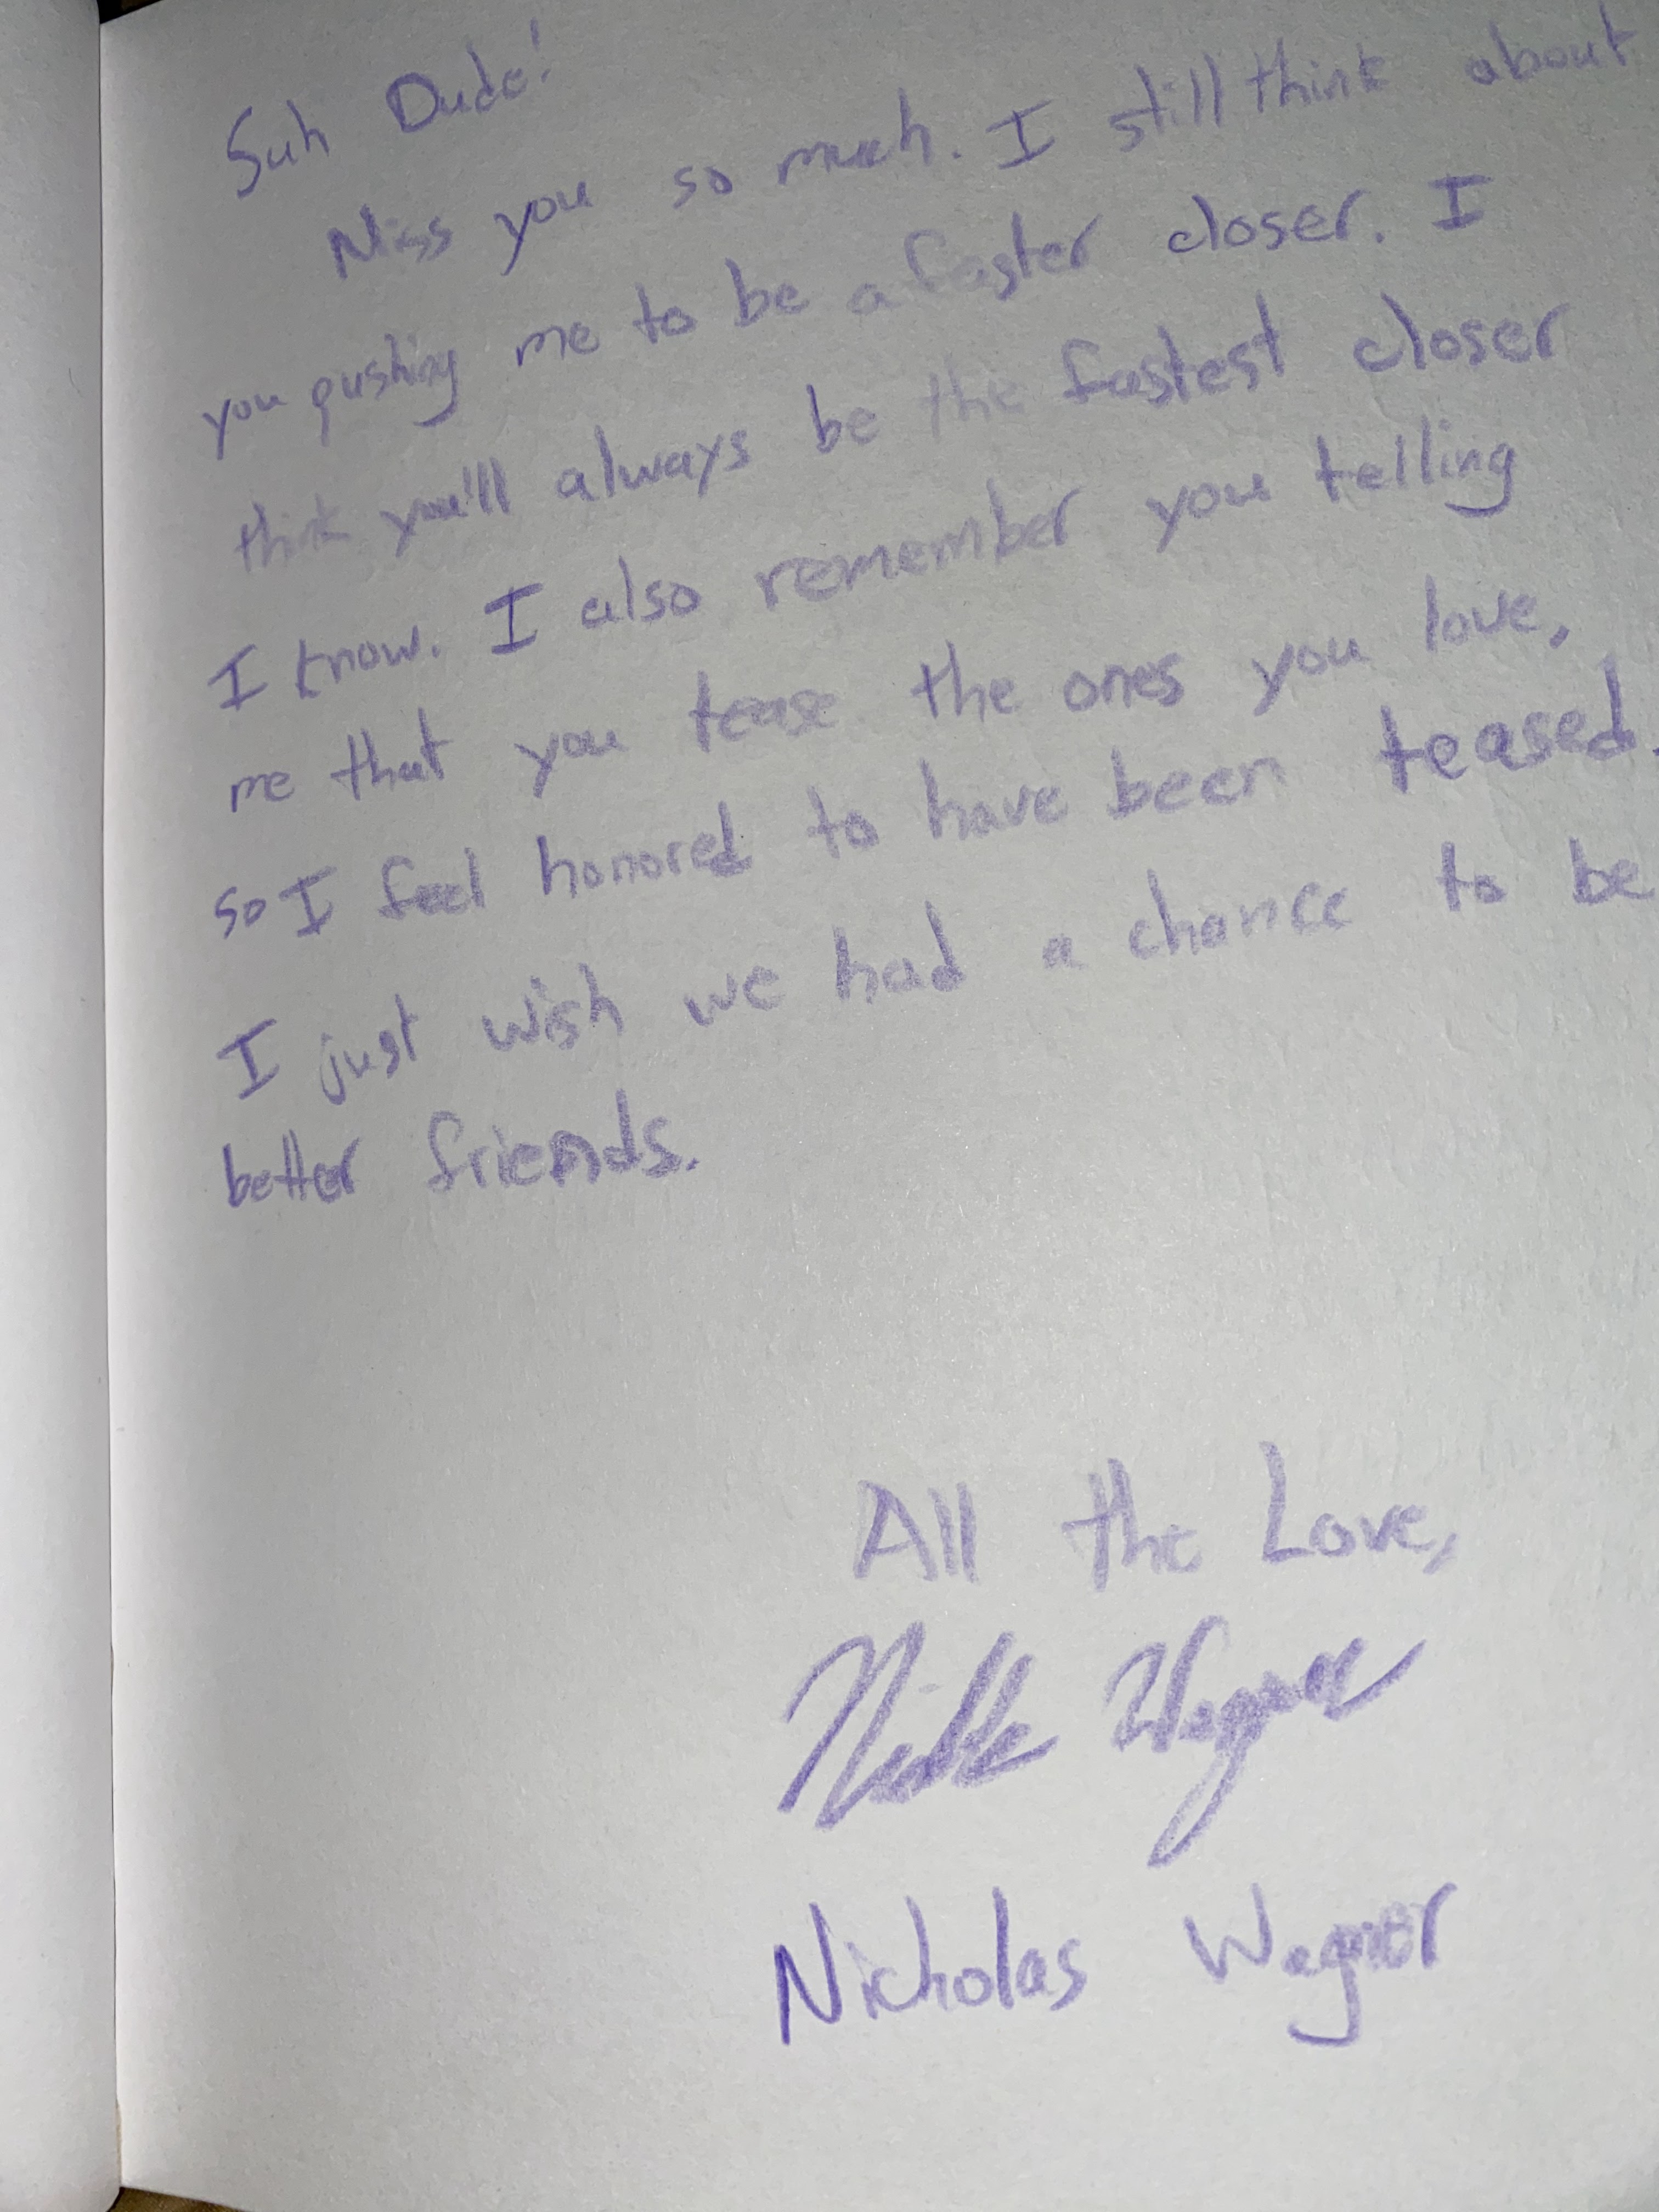 Suh Dude!
Miss you so much. I still think about
you pushing me to be a faster closer. I
think you'll always be the fastest closer
I know. I also remember you telling
me that you tease the ones you love,
so I feel honored to have been teased.
I just wish we had a chance to be
better friends.
All the Love,
Wagner
Nicholas Wagner